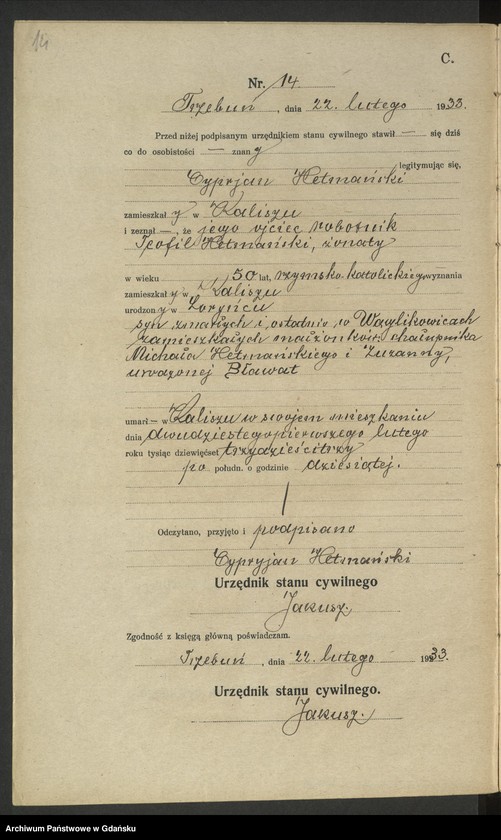 14
C.
Nr. 14
Trzebuń, dnia 22. lutego 1933.
Przed niżej podpisanym urzędnikiem stanu cywilnego stawił — się dziś
co do osobistości — znany
legitymując się,
Cyprjan Hetmański
zamieszkały w Kaliszu
i zeznał —, że jego ojciec robotnik
Teofil Hetmański, żonaty
w wieku 50 lat, rzymsko-katolickiego wyznania
zamieszkały w Kaliszu
urodzony w Loryńcu
syn zmarłych i ostatnio w Wąglikowicach
zamieszkałych małżonków chałupnika
Michała Hetmańskiego i Zuzanny,
urodzonej Bławat
umarł — w Kaliszu w swojem mieszkaniu
dnia dwudziestegopierwszego lutego
roku tysiąc dziewięćset trzydzieścitrzy
po połudn. o godzinie dziesiątej.
Odczytano, przyjęto i podpisano
Cypryjan Hetmański
Urzędnik stanu cywilnego
Jakusz.
Zgodność z księgą główną poświadczam.
Trzebuń, dnia 22. lutego 1933.
Urzędnik stanu cywilnego.
Jakusz.
Archiwum Państwowe w Gdańsku